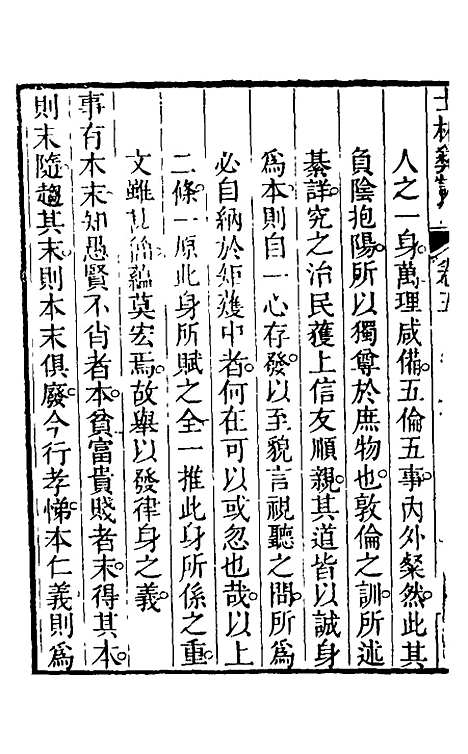 士林彝訓 卷五
人之一身萬理咸備。五倫五事。內外粲然。此其
負陰抱陽。所以獨尊於庶物也。敦倫之訓。所述
綦詳。究之治民獲上信友順親。其道皆以誠身
為本。則自一心存發。以至貌言視聽之間。所為
必自納於矩矱中者。何在可以或忽也哉。以上
二條。一原此身所賦之全。一推此身所係之重
文雖 蘊莫宏焉。故舉以發律身之義
事有本末。知愚賢不肖者本。貧富貴賤者末。得其本。
則末隨。趨其末。則本末俱廢。今行孝悌。本仁義。則為